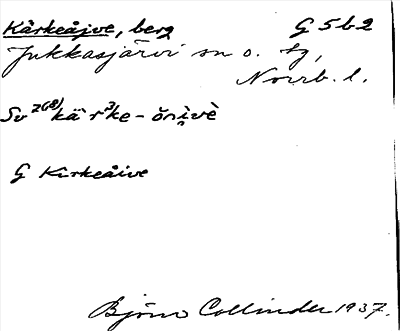 Kårkeåjve, berg G 5 b 2
Jukkasjärvi sn o. tg,
Norrb. l.
Sv
G Kirkeåive
Björn Collinder 1937.